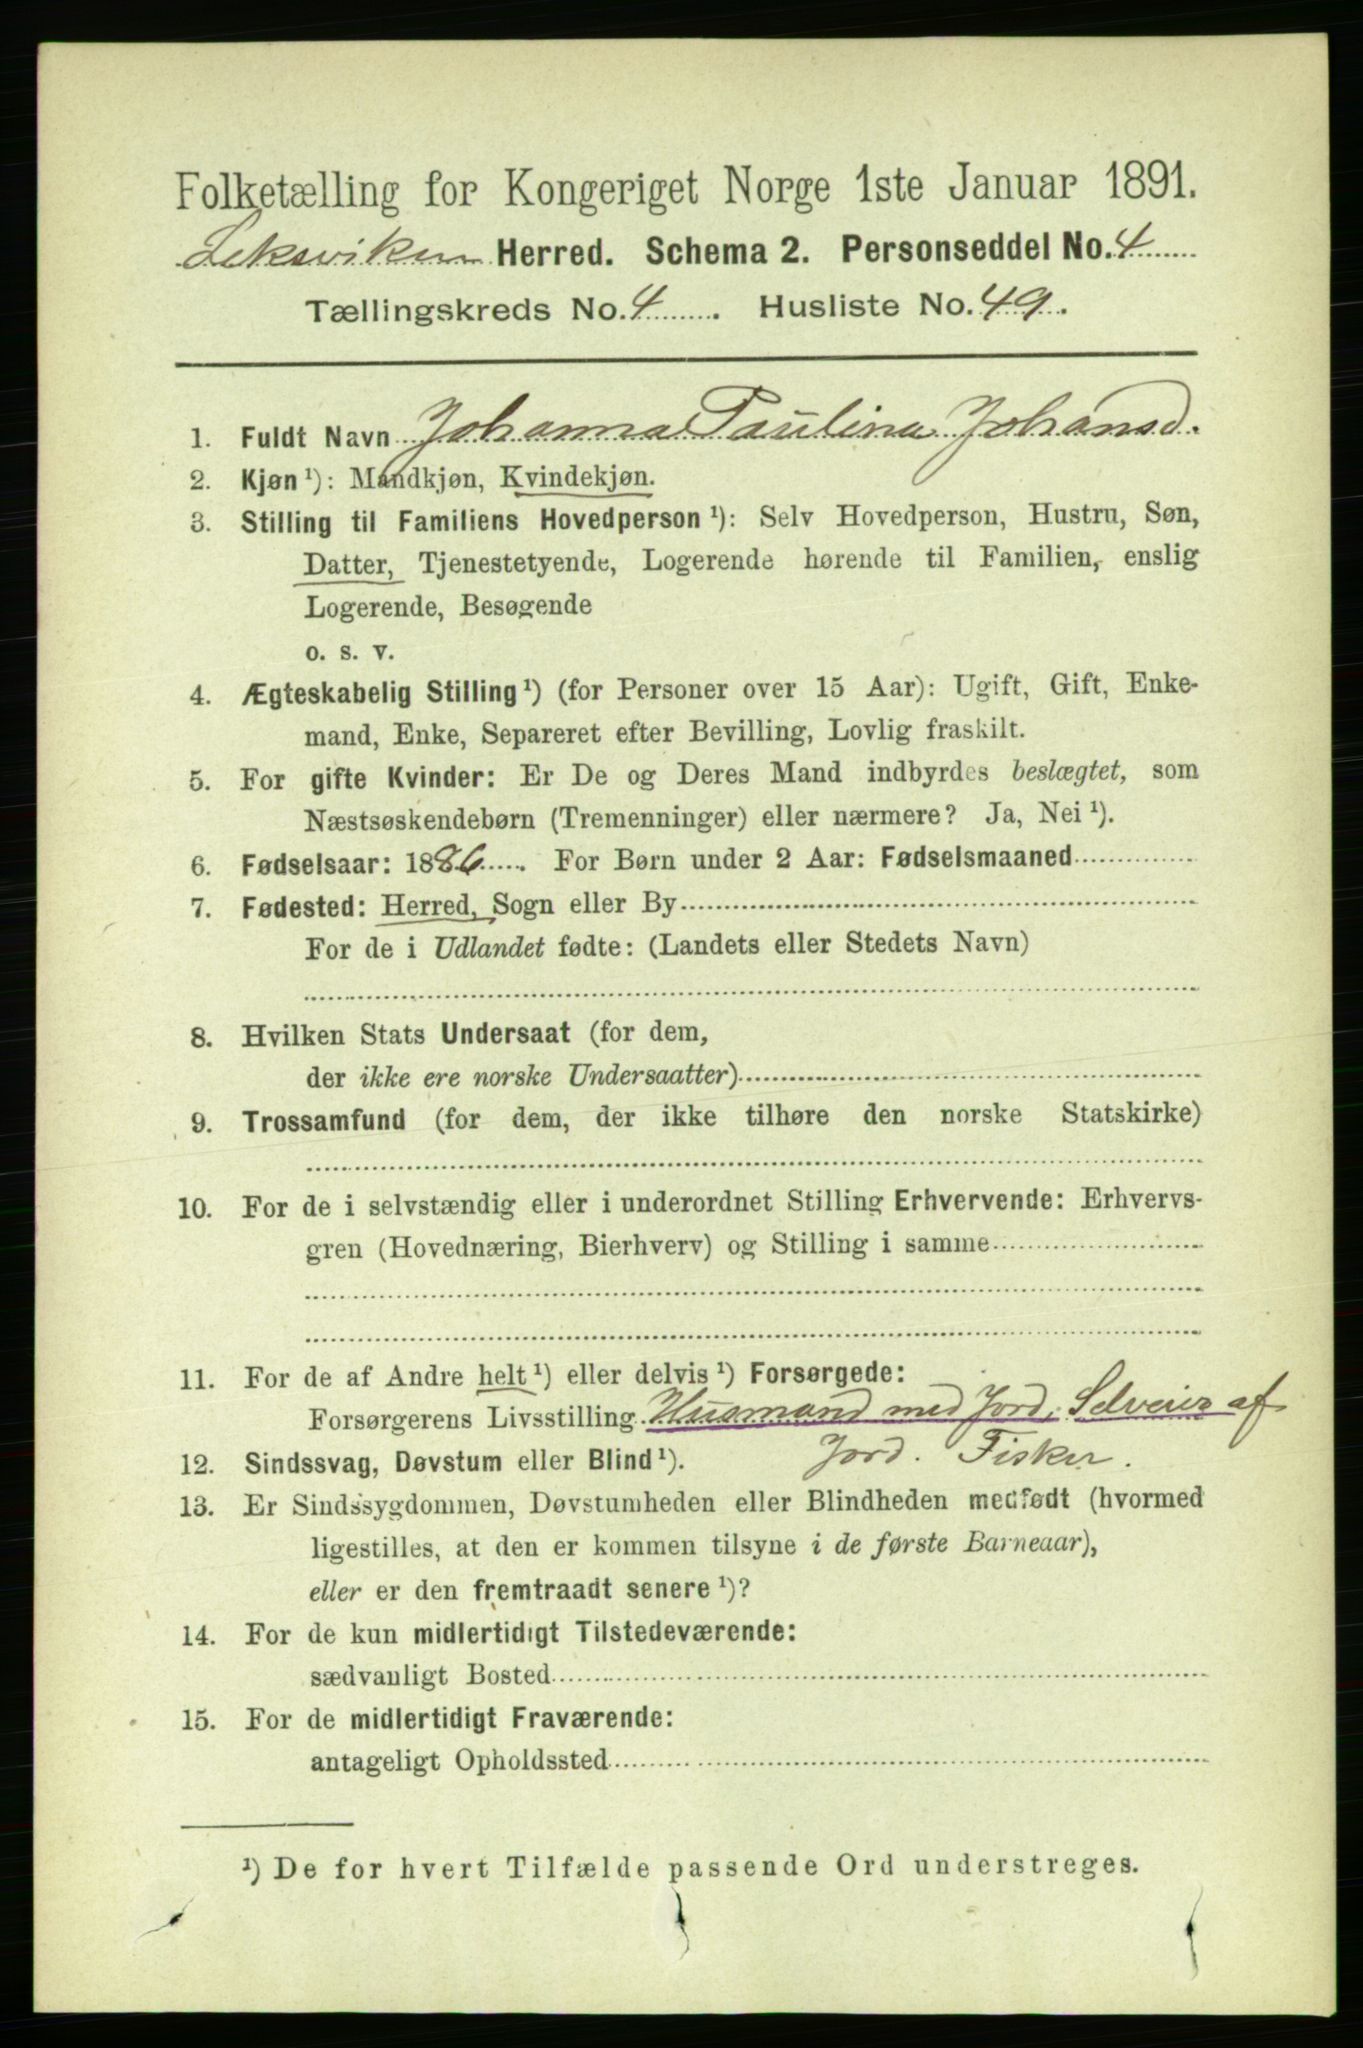 Folketælling for Kongeriget Norge 1ste Januar 1891.
Leksviken Herred. Schema 2. Personseddel No. 4
Tællingskreds No. 4. Husliste No. 49.
1. Fuldt Navn Johanna Paulina Johansd.
2. Kjøn ¹): Mandkjøn, Kvindekjøn.
3. Stilling til Familiens Hovedperson ¹): Selv Hovedperson, Hustru, Søn,
Datter, Tjenestetyende, Logerende hørende til Familien, enslig
Logerende, Besøgende
o. s. v.
4. Ægteskabelig Stilling ¹) (for Personer over 15 Aar): Ugift, Gift, Enke-
mand, Enke, Separeret efter Bevilling, Lovlig fraskilt.
5. For gifte Kvinder: Er De og Deres Mand indbyrdes beslægtet, som
Næstsøskendebørn (Tremenninger) eller nærmere? Ja, Nei ¹).
6. Fødselsaar: 1886. For Børn under 2 Aar: Fødselsmaaned
7. Fødested: Herred, Sogn eller By
For de i Udlandet fødte: (Landets eller Stedets Navn)
8. Hvilken Stats Undersaat (for dem,
der ikke ere norske Undersaatter)
9. Trossamfund (for dem, der ikke tilhøre den norske Statskirke)
10. For de i selvstændig eller i underordnet Stilling Erhvervende: Erhvervs-
gren (Hovednæring, Bierhverv) og Stilling i samme
11. For de af Andre helt ¹) eller delvis ¹) Forsørgede:
Forsørgerens Livsstilling Husmand med Jord, Selveier af
12. Sindssvag, Døvstum eller Blind ¹). Jord. Fisker.
13. Er Sindssygdommen, Døvstumheden eller Blindheden medfødt (hvormed
ligestilles, at den er kommen tilsyne i de første Barneaar),
eller er den fremtraadt senere ¹)?
14. For de kun midlertidigt Tilstedeværende:
sædvanligt Bosted
15. For de midlertidigt Fraværende:
antageligt Opholdssted
¹) De for hvert Tilfælde passende Ord understreges.